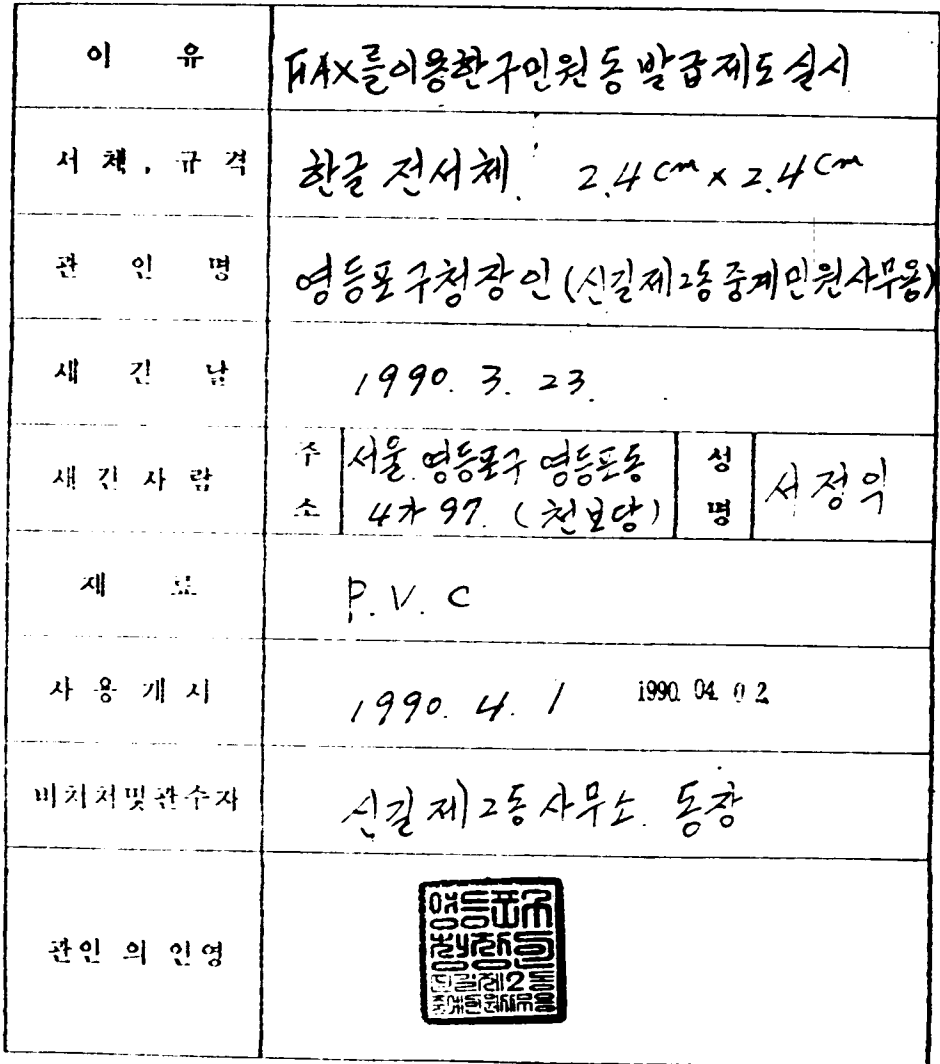 이 유 FAX를이용한구민원동발급제도실시
서 체, 규 격 한글 전서체. 2.4cm x 2.4cm
관 인 명 영등포구청장인(신길제2동중계민원사무용)
새 긴 날 1990. 3. 23.
새 긴 사 람 주소 서울.영등포구 영등포동 4가 97. (천보당) 성명 서정익
재 료 P.V.C
사 용 개 시 1990. 4. 1 1990. 04. 02
비치처및관수자 신길제2동사무소. 동장
관인 의 인영
영등포구
청장인
신길제2동
중계민원사무용